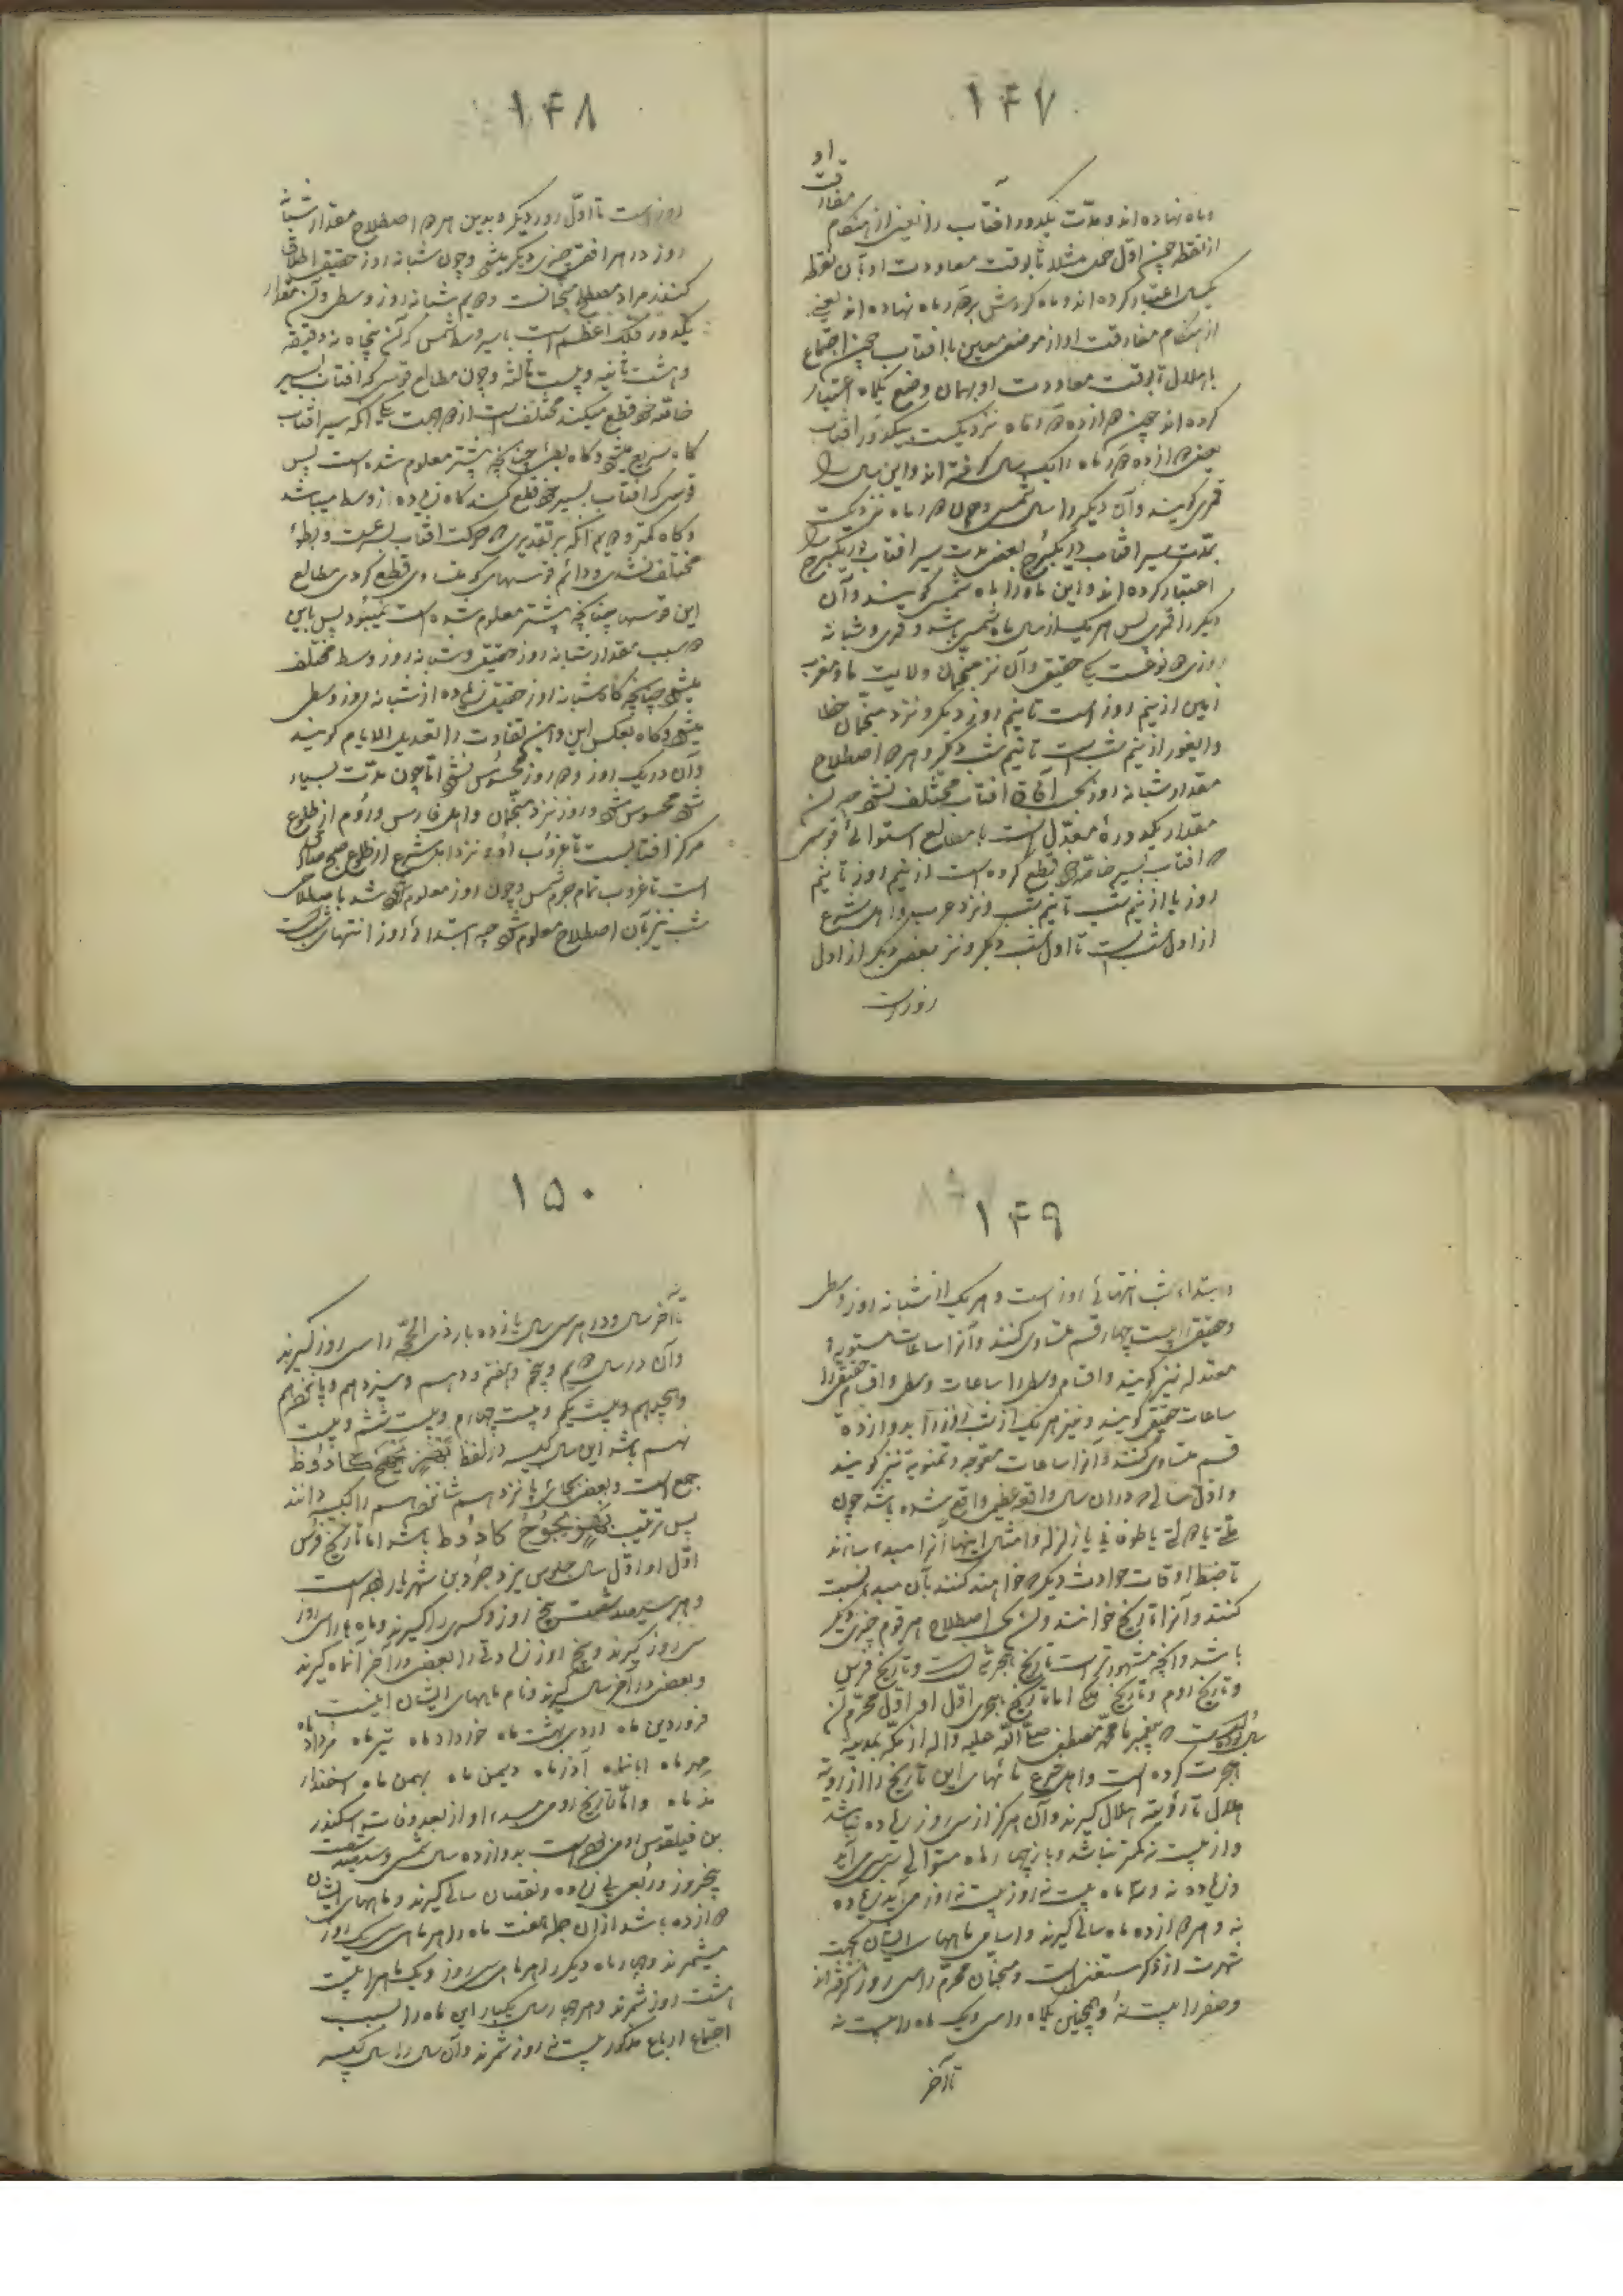 ۱۴۷
وماه نهاده اند و مدّت یکدور افتاب را یعنی از هنگام مفارقت او
از نقطه چون اول حمل مثلا تا بوقت معاودت او بآن نقطه
یکسال اعتبار کرده اند و ماه کردش بر قمر ماه نهاده اند یعنی
از هنگام مفارقت او از موضعی معین با افتاب چون اجتماع
یا هلال تا بوقت معاودت او بهمان وضع یکماه اعتبار
کرده اند چون دوازده ماه نزدیکست بیکدور افتاب
بعضی دوازده ماه را یک سال گرفته اند و این سال را
قمری کویند وآن دیکر را سال شمسی وچون ماه نزدیکست
بمدّت سیر افتاب در یکبرج بعضی مدت سیر افتاب در یکبرج را
اعتبار کرده اند و این ماه را ماه شمسی کویند وآن
دیکر را قمری پس هر یک از سال و ماه شمسی باشد و قمری و شبانه
روزی دو نوعست یکی حقیقی وآن نزد منجّمان ولایت ما و مغرب
زمین از نیم روز است تا نیم روز دیکر و نزد منجّمان خطا
وایغور از نیم شب است تا نیم شب دیکر و بهر دو اصطلاح
مقدار شبانه روز بحسب آفاق مختلف نشود چه آن
مقدار یکدورهٔ معدّل است با مطالع استوائی قوسی
که افتاب بسیر خاصّه خود قطع کرده است از نیم روز تا نیم
روز یا از نیم شب تا نیم شب ونزد عرب و اهل شرع
از اول شب است تا اول شب دیکر و نزد بعضی دیکر از اول
روز است
۱۴۸
روز است تا اوّل روز دیکر و بدین هر دو اصطلاح مقدار شبانه
روز در هر افقی چیزی دیکر میشود وچون شبانه روز حقیقی اطلاق
کنند مراد مصطلح منجمانست دویم شبانه روز وسطی وآن مقدار
یکدور فلک اعظم است با سیر وسط شمس که آن پنجاه نه دقیقه
و هشت ثانیه و بیست ثالثه وچون مطالع قوسی که افتاب بسیر
خاصّه خود قطع میکند مختلف است از دو جهت یکی آنکه سیر افتاب
کاه سریع میشود و کاه بطی چنانچه پیشتر معلوم شده است پس
قوسی که افتاب بسیر خود قطع کند کاه زیاده از وسط میباشد
و کاه کمتر و دویم آنکه بر تقدیری که حرکت افتاب بسرعت و بطؤ
مختلف نشدی و دائم قوسهای متساوی قطع کردی مطالع
این قوسها چنانچه پیشتر معلوم شده است نمیبود پس باین
دو سبب مقدار شبانه روز حقیقی وشبانه روز وسط مختلف
میشود چنانچه کاه شبانه روز حقیقی زیاده از شبانه روز وسطی
میشود و کاه بعکس این و این تفاوت را تعدیل الایام کویند
وآن در یک روز و دو روز محسوس نشود امّا چون مدّت بسیار
شود محسوس شود و روز نزد منجّمان و اهل فارس و رُوم از طلوع
مرکز افتابست تا غرُوب او و نزد اهل شرع از طلوع صبح صادق
است تا غروب تمام جرم شمس وچون روز معلوم شد باصطلاحی
شب نیز بآن اصطلاح معلوم شود چه ابتداء روز انتهای شبست
۱۴۹
و ابتداء شب انتهائی روز است و هر یک از شبانه روز وسطی
وحقیقی را بیست چهار قسم متساوی کنند وآنرا ساعات مستویه
معتدله نیز کویند و اقسام وسطی را ساعات وسطی و اقسام حقیقی را
ساعات حقیقی کویند و نیز هر یک از شب و روز را بدوازده
قسم متساوی کنند وآنرا ساعات معوجه و زمانیه نیز کویند
و اوّل سالی که در ان سال واقعهٔ عظیم واقع شده باشد چون
ملّتی یا دولتی یا طوفانی یا زلزله و امثال اینها آنرا مبدء سازند
تا ضبط اوقات حوادث دیکر که خواهند کنند بآن مبدء نسبت
کنند وآنرا تاریخ خوانند وآن بحسب اصطلاح هر قوم چیزی دیکر
باشد وآنچه مشهورتر است تاریخ هجرتست و تاریخ فرس
و تاریخ روم و تاریخ ملکی امّا تاریخ هجری اوّل او اوّل محرّم آن
سال بوده است که پیغمبر ما محمّد مصطفی صلّی اللّه علیه وآله از مکّه بمدینه
هجرت کرده است و اهل شرع ماههای این تاریخ را از رویة
هلال تا رؤیته هلال کیرند وآن هرکز از سی روز زیاده نباشد
و از بیست نه کمتر نباشد و تا چهار ماه متوالی سی سی آید
و زیاده نه و تا سه ماه بیست نه روز بیست نه روز می آید و زیاده
نه و هر دوازده ماه سالی کیرند و اسامی ماههای ایشان بجهت
شهرت از ذکر مستغنی است و منجّمان محرّم را سی روز گرفته اند
وصفر را بیست نه و همچنین یکماه را سی و یک ماه را بیست نه
تا آخر
۱۵۰
تا آخر سال و در هر سی سال یازده بار ذی الحجّه را سی روز کیرند
وآن در سال دویم و پنجم و هفتم و دهم و سیزدهم و پانزدهم
و هجدهم و بیست یکم و بیست چهارم و بیست ششم و بیست
نهم باشد این سال کبیسه در لفظ بهزیجهح کادوط
جمع است و بعضی بجای پانزدهم شانزدهم را کبیسه دانند
پس ترتیب بهزیجوح کادوط باشد امّا تاریخ فُرس
اوّل او اوّل سال جلوس یزدجرد بن شهریار بوده است
و هر سال سیصد شصت پنج روز و کسری را کیرند و ماه را سی روز
سی روز کیرند و پنج روز زیادتی را بعضی در آخر آبانماه کیرند
و بعضی در آخر سال کیرند و نام ماههای ایشان اینست
فروردین ماه اردی بهشت ماه خرداد ماه تیر ماه مرداد ماه
مهر ماه ابانماه آذر ماه دیمن ماه بهمن ماه اسفندار
مذ ماه و امّا تاریخ رومی مبدء او از بعد وفات اسکندر
بن فیلقوس رومی بوده است بدوازده سال شمسی و سیصد شصت
پنجروز و ربعی بی زیاده و نقصان سالی کیرند و ماههای ایشان
دوازده باشد از ان جمله هفت ماه را هر ماهی سی یک روز
میشمرند و چهار ماه دیکر را هر ماه سی روز و یک ماه را بیست
هشت روز شمرند و هر چهار سال یکبار این ماه را بسبب
اجتماع ارباع مذکور بیست نه روز شمرند وآن سال را سال کبیسه